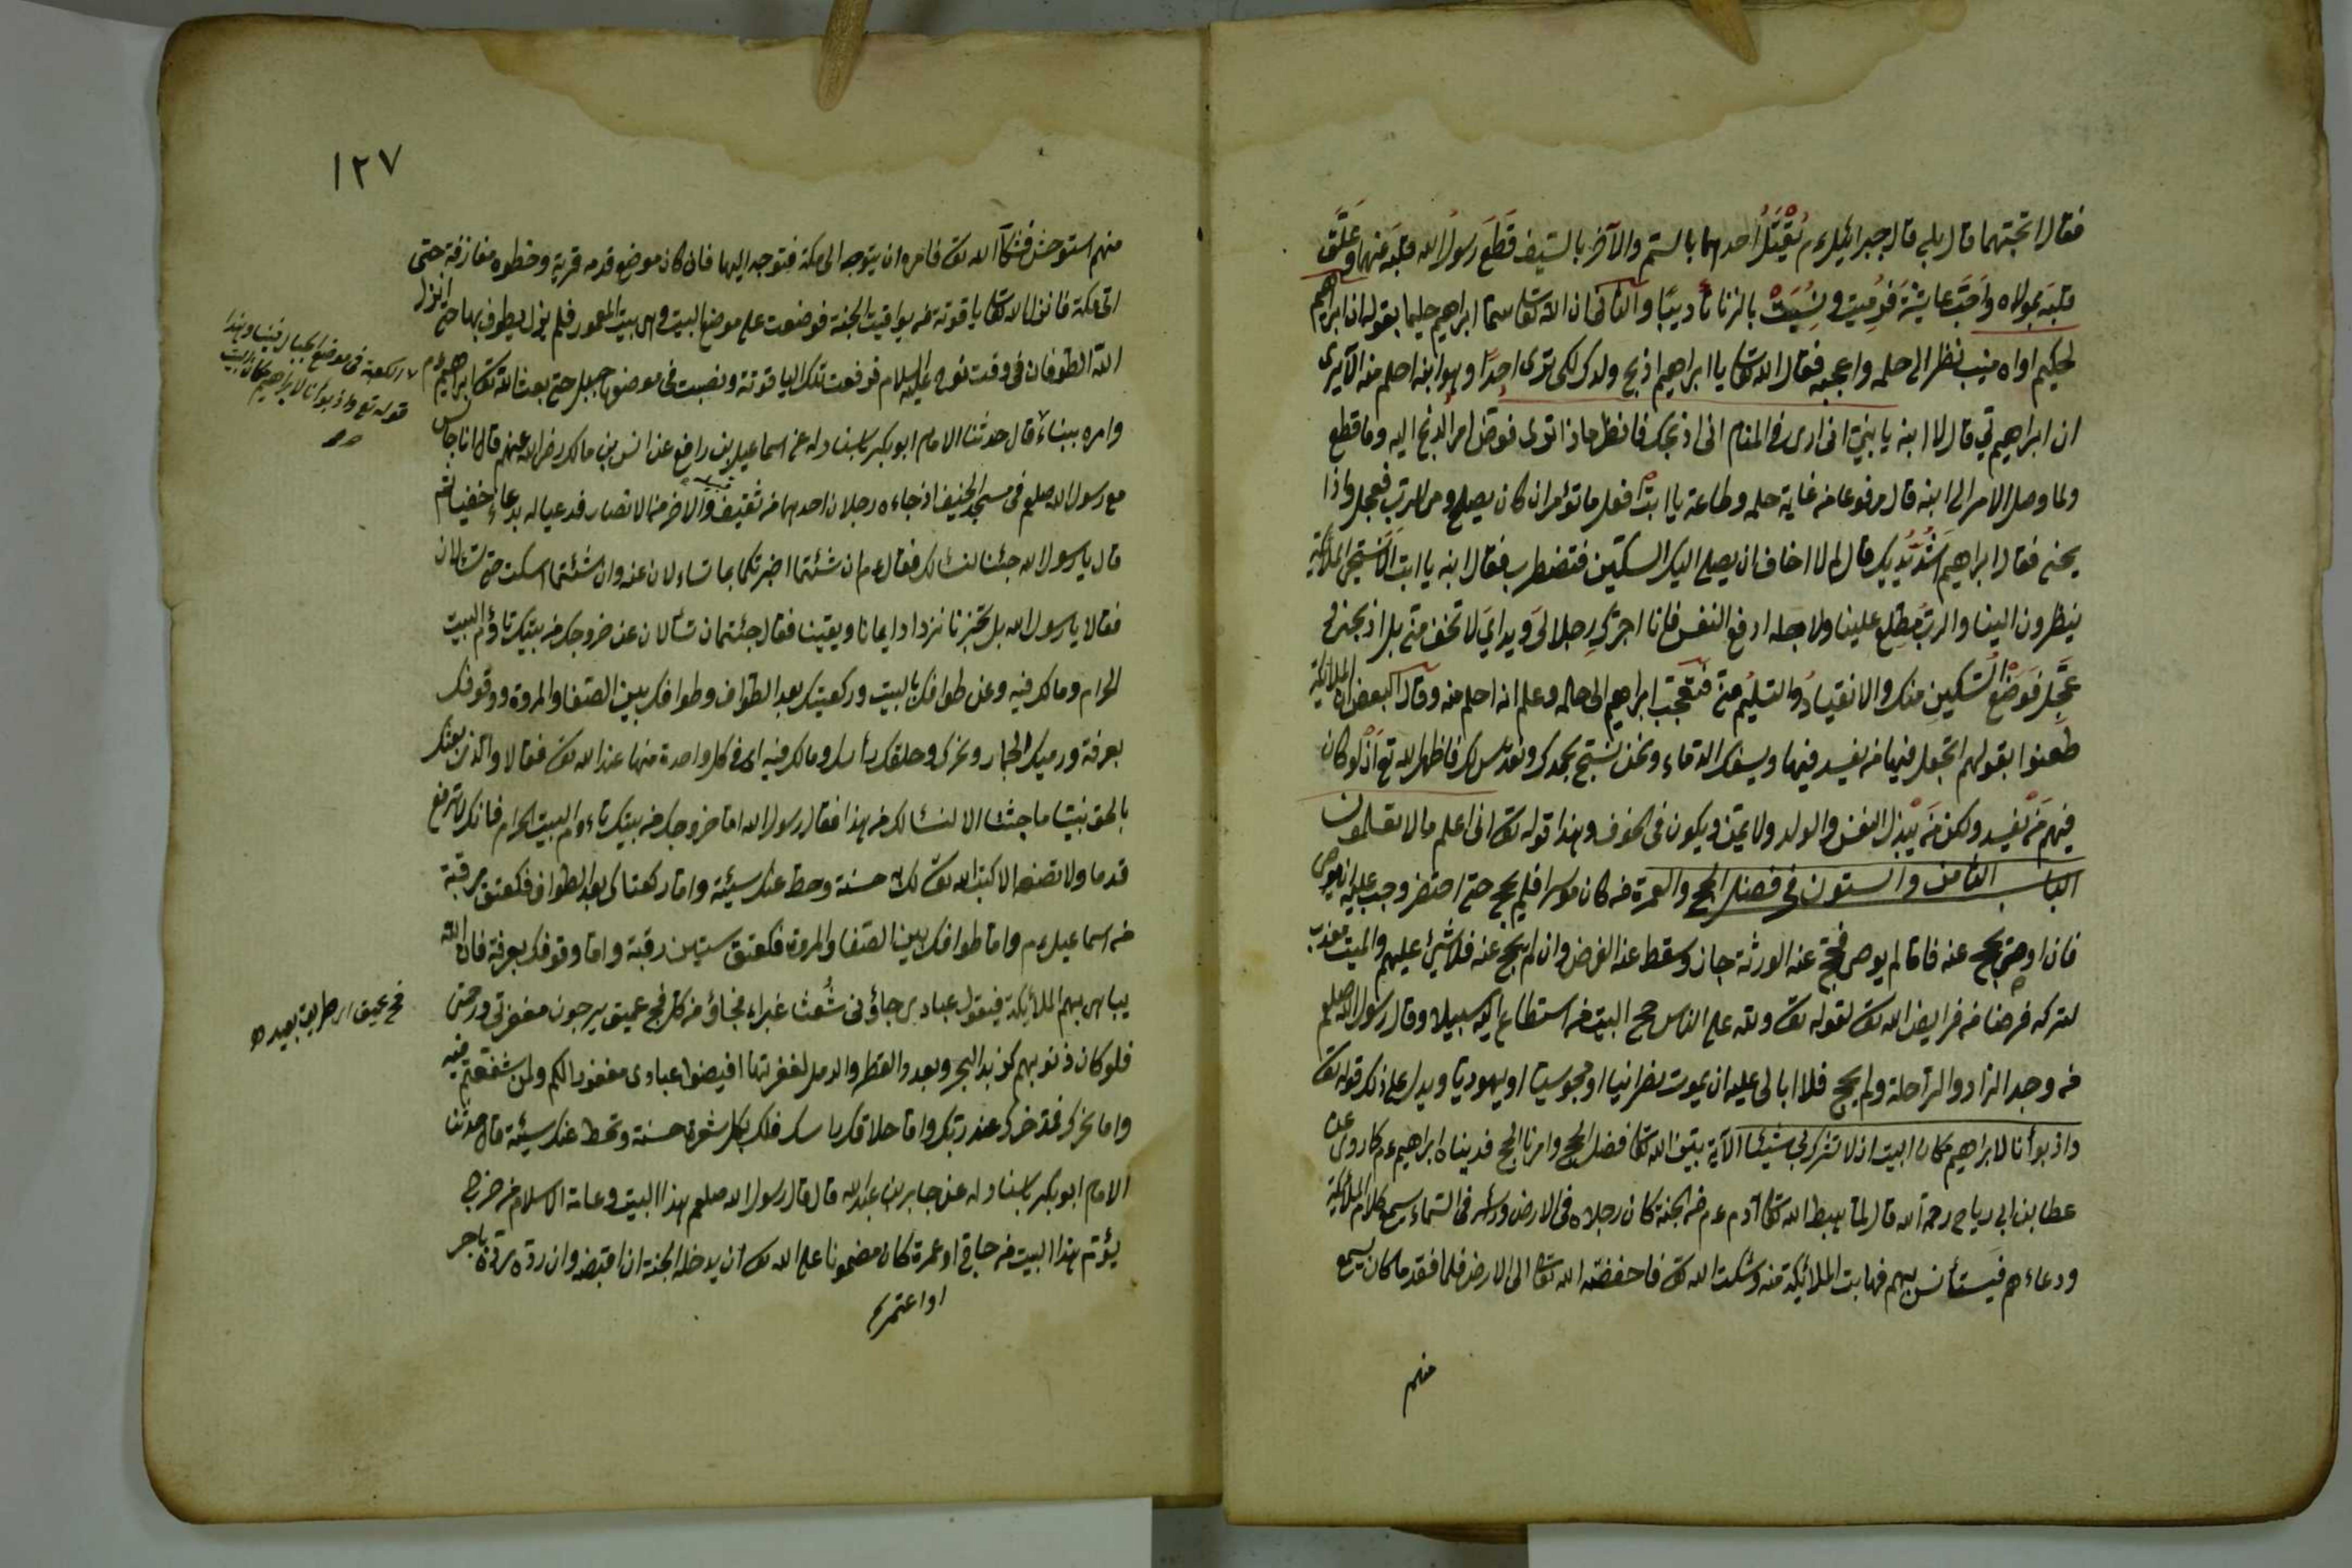 فقال اتحبهما قال بلى قال جبرائيل عم يُقْتَلُ احدهما بالسم والآخر بالسيف قَطَعَ رسولُ الله قلبَه عنهما وعَلَّقَ
قلبَه بمولاه واَحَبَّ عايشةَ فَرُمِيَت ونُسِبَتْ بالزنا تأديبًا والثانى ان الله تعالى سما ابراهيم حليما بقوله ان ابراهيم
لحليم اواه منيب نظر الى حلمه واعجبه فقال الله تعالى يا ابراهيم اذبح ولدك لكى ترى احدًا وهو ابنه احلم منه الا يرى
ان ابراهيم قال لابنه يا بنيّ انى ارى فى المنام انى اذبحك فانظر ماذا ترى فوّض امر الذبح اليه وما قطع
ولما وصل الامر الى ابنه قال مرفوعا من غاية حلمه وطاعة يا ابت افعل ما تؤمر ان كان يصلح من الرب فعجل واذا
يحنى فقال ابراهيم اشدد يديك قال لم لا اخاف ان يصل اليك السكين فتضطرب فقال ابنه يا ابت الا نستحى الملائكة
ينظرون الينا والرب مطلع علينا ولاجله ارفع النفس فانا اجرّك رجلاى ويداى لا تخف منى بل اذبحنى و
عَجِّل فَوَضْعُ السّكين منك والانقيادُ والتسليمُ منى فتعجب ابراهيم الى حاله وعلم انه احلم منه وقال البعض ان الملائكة
طعنوا بقولهم اتجعل فيها من يفسد فيها ويسفك الدماء ونحن نسبح بحمدك ونقدس لك فاظهر الله تع ان لو كان
فيهم مَنْ يفسد ولكن مَن يبذل النفس والولد ولا يمن ويكون فى الخوف وهذا قوله تعالى انى اعلم ما لا تعلمون
الباب الثامن والستون فى فضل الحج والعمرة من كان موسرا فلم يحج حتى احتضر وجب عليه ان يوصى
فان اوصى يحج عنه فاما لم يوص فحج عنه الورثة جاز وسقط عنه الفرض وان لم يحج عنه فلا شيئ عليهم والميت معذب
لتركه فرضا من فرايض الله تعالى لقوله تعالى ولله على الناس حج البيت من استطاع اليه سبيلا وقال رسول الله صلعم
من وجد الزاد والراحلة ولم يحج فلا ابالى عليه ان يموت نصرانيا او مجوسيا او يهوديا ويدل على ذلك قوله تعالى
واذ بوأنا لابراهيم مكان البيت ان لا تشرك بى شيئا الآية بين الله تعالى فضل الحج وامرنا الحج فدينا ابراهيم عم كما روى عن
عطا بن ابى رباح رحمه الله قال لما هبط الله تعالى آدم عم من الجنة كان رجلاه فى الارض ورأسه فى السماء يسمع كلام الملائكة
ودعاءهم فيستأنس بهم فهابت الملائكة منه وشكت الله تعالى فاخفضته الله تعالى الى الارض فلما فقد ما كان يسمع
منهم
١٢٧
منهم استوحش فشكا الله تعالى فامره ان يتوجه الى مكة فتوجه اليها فان كان موضع قدمه قرية وخطوه مفازة حتى
اتى مكة فانزل الله تعالى ياقوتة من يواقيت الجنة فوضعت على موضع البيت وهى بيت المعمور فلم يزل يطوف بها حتى انزل
الله الطوفان فى وقت نوح عليه السلام فرفعت تلك الياقوتة ونصبت فى موضعها جبل حتى بعث الله تعالى ابراهيم عم
وامره ببناءه قال حدثنا الامام ابو بكر باسناده عن اسماعيل بن رافع عن انس بن مالك رضى الله عنهم قال انا جالس
مع رسول الله صلعم فى مسجد الخيف اذ جاءه رجلان احدهما من ثقيف والاخر من الانصار فدعيا له بدعاء خفيا ثم
قال يا رسول الله جئنا لنسئالك فقال عم ان شئتما اخبرتكما بما تساءلان عنه وان شئتما اسكت حتى تسئلان
فقالا يا رسول الله بل تخبرنا نزداد ايمانا ويقينا فقال جئتمان تسألان عن خروجك من بيتك تاؤم البيت
الحرام وما لك فيه وعن طوافك بالبيت وركعيتك بعد الطواف وطوافك بين الصفا والمروة ووقوفك
بعرفة ورميك الجمار ونحرك وحلقك رأسك وما لك فيه اى فى كل واحدة منها عند الله تعالى فقالا والذى بعثك
بالحق نبيّا ما جئنا الا لنسئالك من هذا فقال رسول الله اما خروجك من بيتك تاءوم البيت الحرام فانك لا ترفع
قدما ولا تضعها الا كتب الله تعالى لك حسنة وحط عنك سيئة واما ركعتاك بعد الطواف فكعتق رقبة
من اسماعيل عم واما طوافك بين الصفا والمروة فكعتق ستين رقبة واما وقوفك بعرفة فان الله
يباهى بهم الملائكة فيقول عبادى جاؤنى شُعثا غبراء فجاؤ من كل فج عميق يرجون مغفرتى ورحمتى
فلو كان ذنوبهم كزبد البحر وبعدد القطر والرمل لغفرتها افيضوا عبادى مغفورا لكم ولمن شفعتم فيه
واما نحرك فمذخر لك عند ربك واما حلاقك راسك فلك بكل شعرة حسنة وتحط عنك سيئة قال حدثنا
الامام ابو بكر باسناده عن جابر بن عبد الله قال قال رسول الله صلعم هذا البيت دعامة الاسلام من خرج
يؤم هذا البيت من حاج او عمرة كان مضمونا على الله تعالى ان يدخله الجنة ان اقبضه وان رده رده باجر
او اعتمر
الكعبة فى موضع الجبال فبنيا وهذا
قوله تع واذ بوأنا لابراهيم مكان البيت
فج عميق اى طريق بعيد